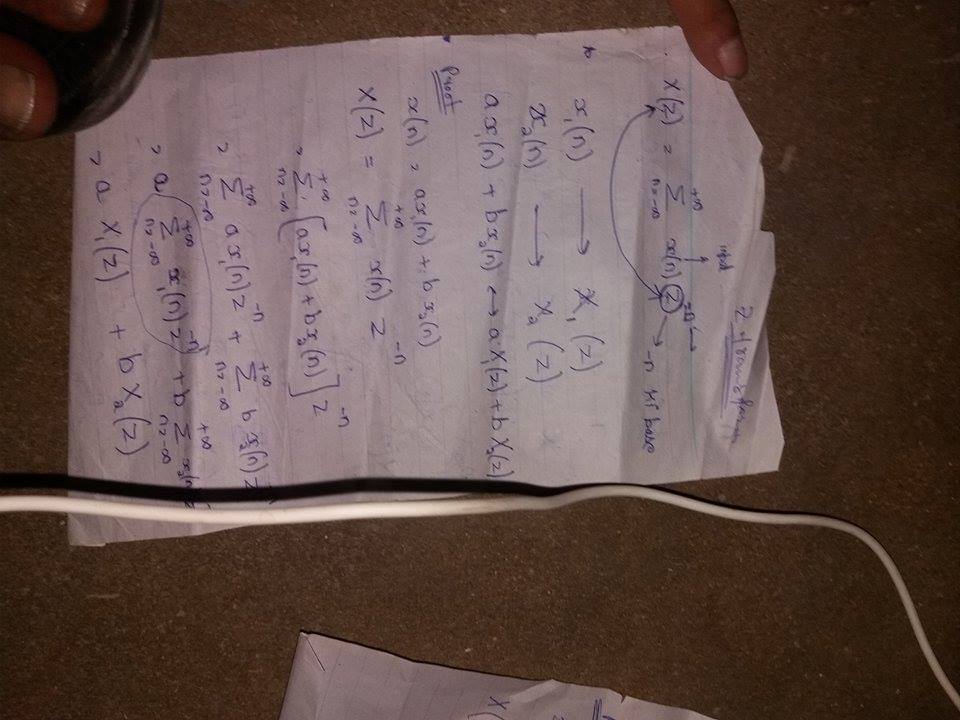 Z transform
X(z) = +∞ Σ n=-∞ x(n) z^-n → -n
input
x₁(n) → X₁(z)
x₂(n) → X₂(z)
ax₁(n) + bx₂(n) ↔ aX₁(z) + bX₂(z)
Proof
x(n) = ax₁(n) + bx₂(n)
X(z) = +∞ Σ n=-∞ x(n) z^-n
= +∞ Σ n=-∞ [ax₁(n) + bx₂(n)] z^-n
= +∞ Σ n=-∞ ax₁(n) z^-n + +∞ Σ n=-∞ b x₂(n) z
= a +∞ Σ n=-∞ x₁(n) z^-n + b +∞ Σ n=-∞ x₂(n) z^-
= a X₁(z) + b X₂(z)
X(